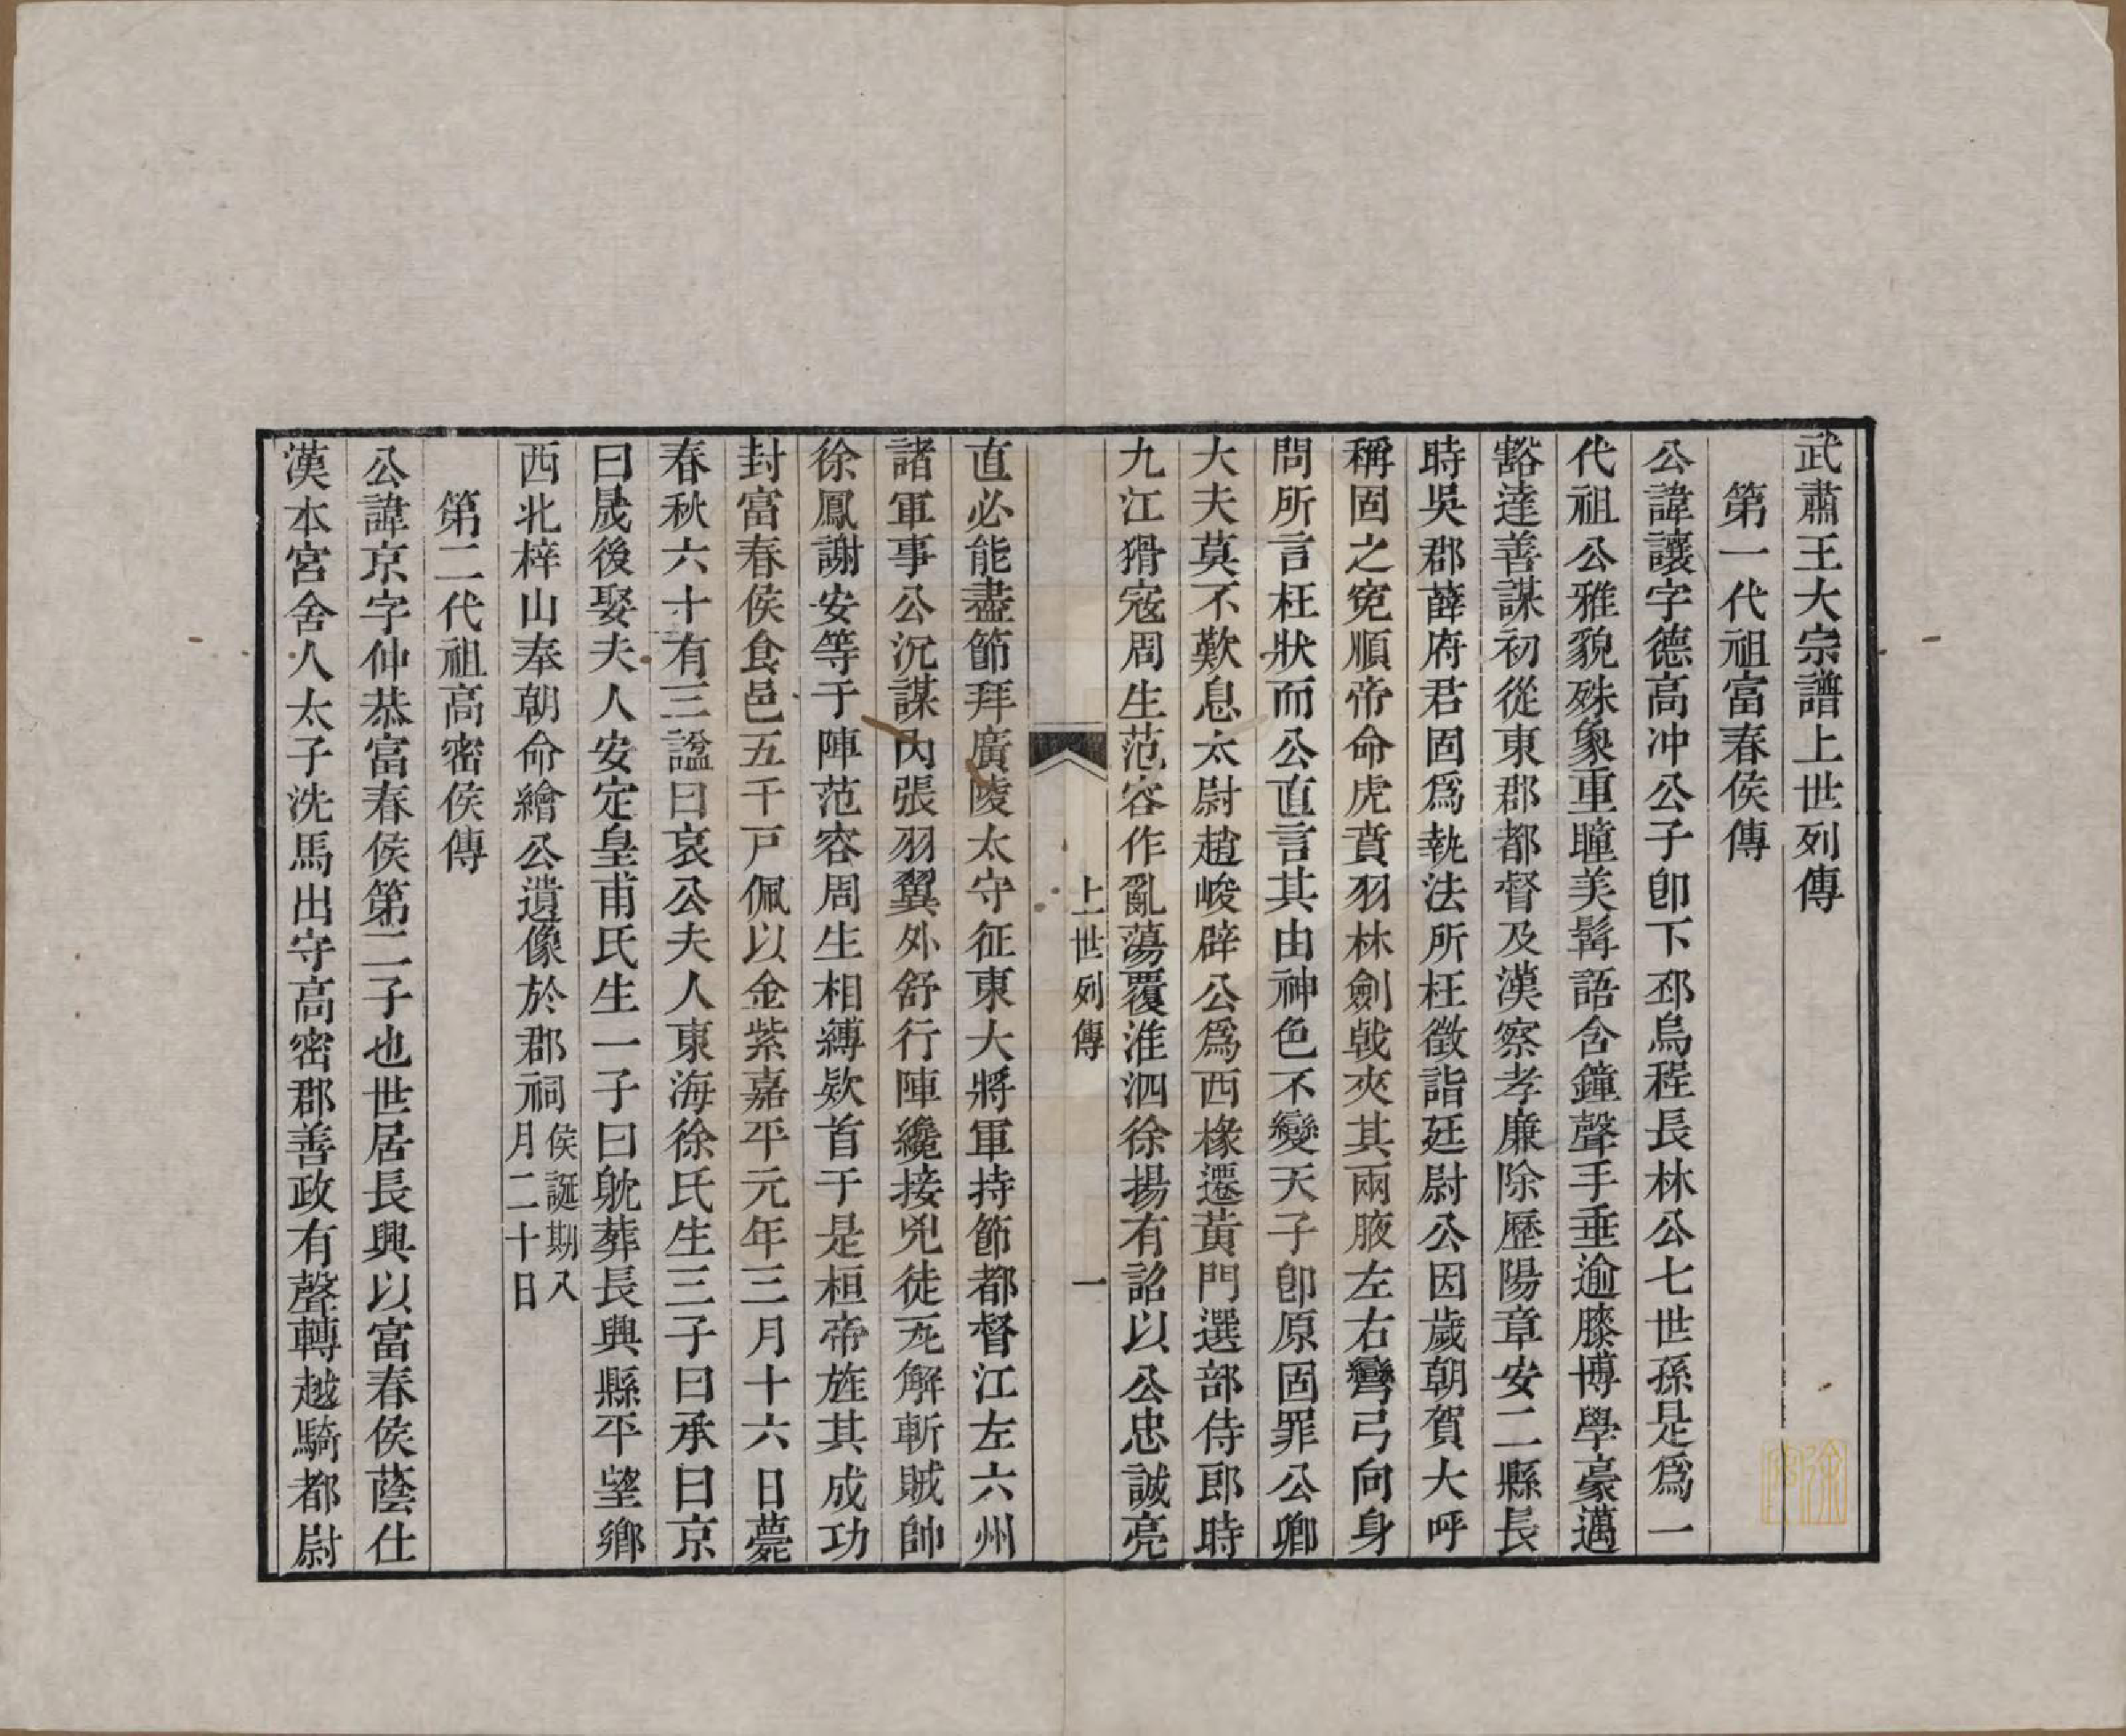 武肅王大宗譜上世列傳
第一代祖富春侯傳
公諱讓字德高冲公子卽下邳烏程長林公七世孫是爲一
代祖公雅貌殊象重瞳美髯語含鐘聲手垂逾膝博學豪邁
豁達善謀初從東郡都督及漢察孝廉除歷陽章安二縣長
時吳郡薛府君固爲執法所枉徵詣廷尉公因歲朝賀大呼
稱固之寃順帝命虎賁羽林劍戟夾其兩腋左右彎弓向身
問所言枉狀而公直言其由神色不變天子卽原固罪公卿
大夫莫不歎息太尉趙峻辟公爲西椽遷黃門選部侍郎時
九江猾寇周生范容作亂蕩覆淮泗徐揚有詔以公忠誠亮
上世列傳
一
直必能盡節拜廣陵太守征東大將軍持節都督江左六州
諸軍事公沉謀內張羽翼外舒行陣纔接兇徒瓦解斬賊帥
徐鳳謝安等于陣范容周生相縛欵首于是桓帝旌其成功
封富春侯食邑五千戸佩以金紫嘉平元年三月十六日薨
春秋六十有三諡曰哀公夫人東海徐氏生三子曰承曰京
曰晟後娶夫人安定皇甫氏生一子曰躭葬長興縣平望鄉
西北梓山奉朝命繪公遺像於郡祠侯誕期八
月二十日
第二代祖高密侯傳
公諱京字仲恭富春侯第二子也世居長興以富春侯蔭仕
漢本宮舍人太子洗馬出守高密郡善政有聲轉越騎都尉